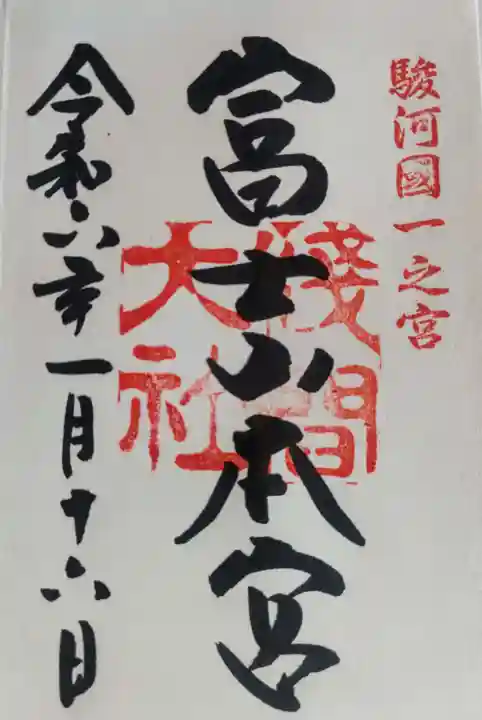 駿河國一之宮
富士山本宮
淺間
大社
令和六年一月十六日